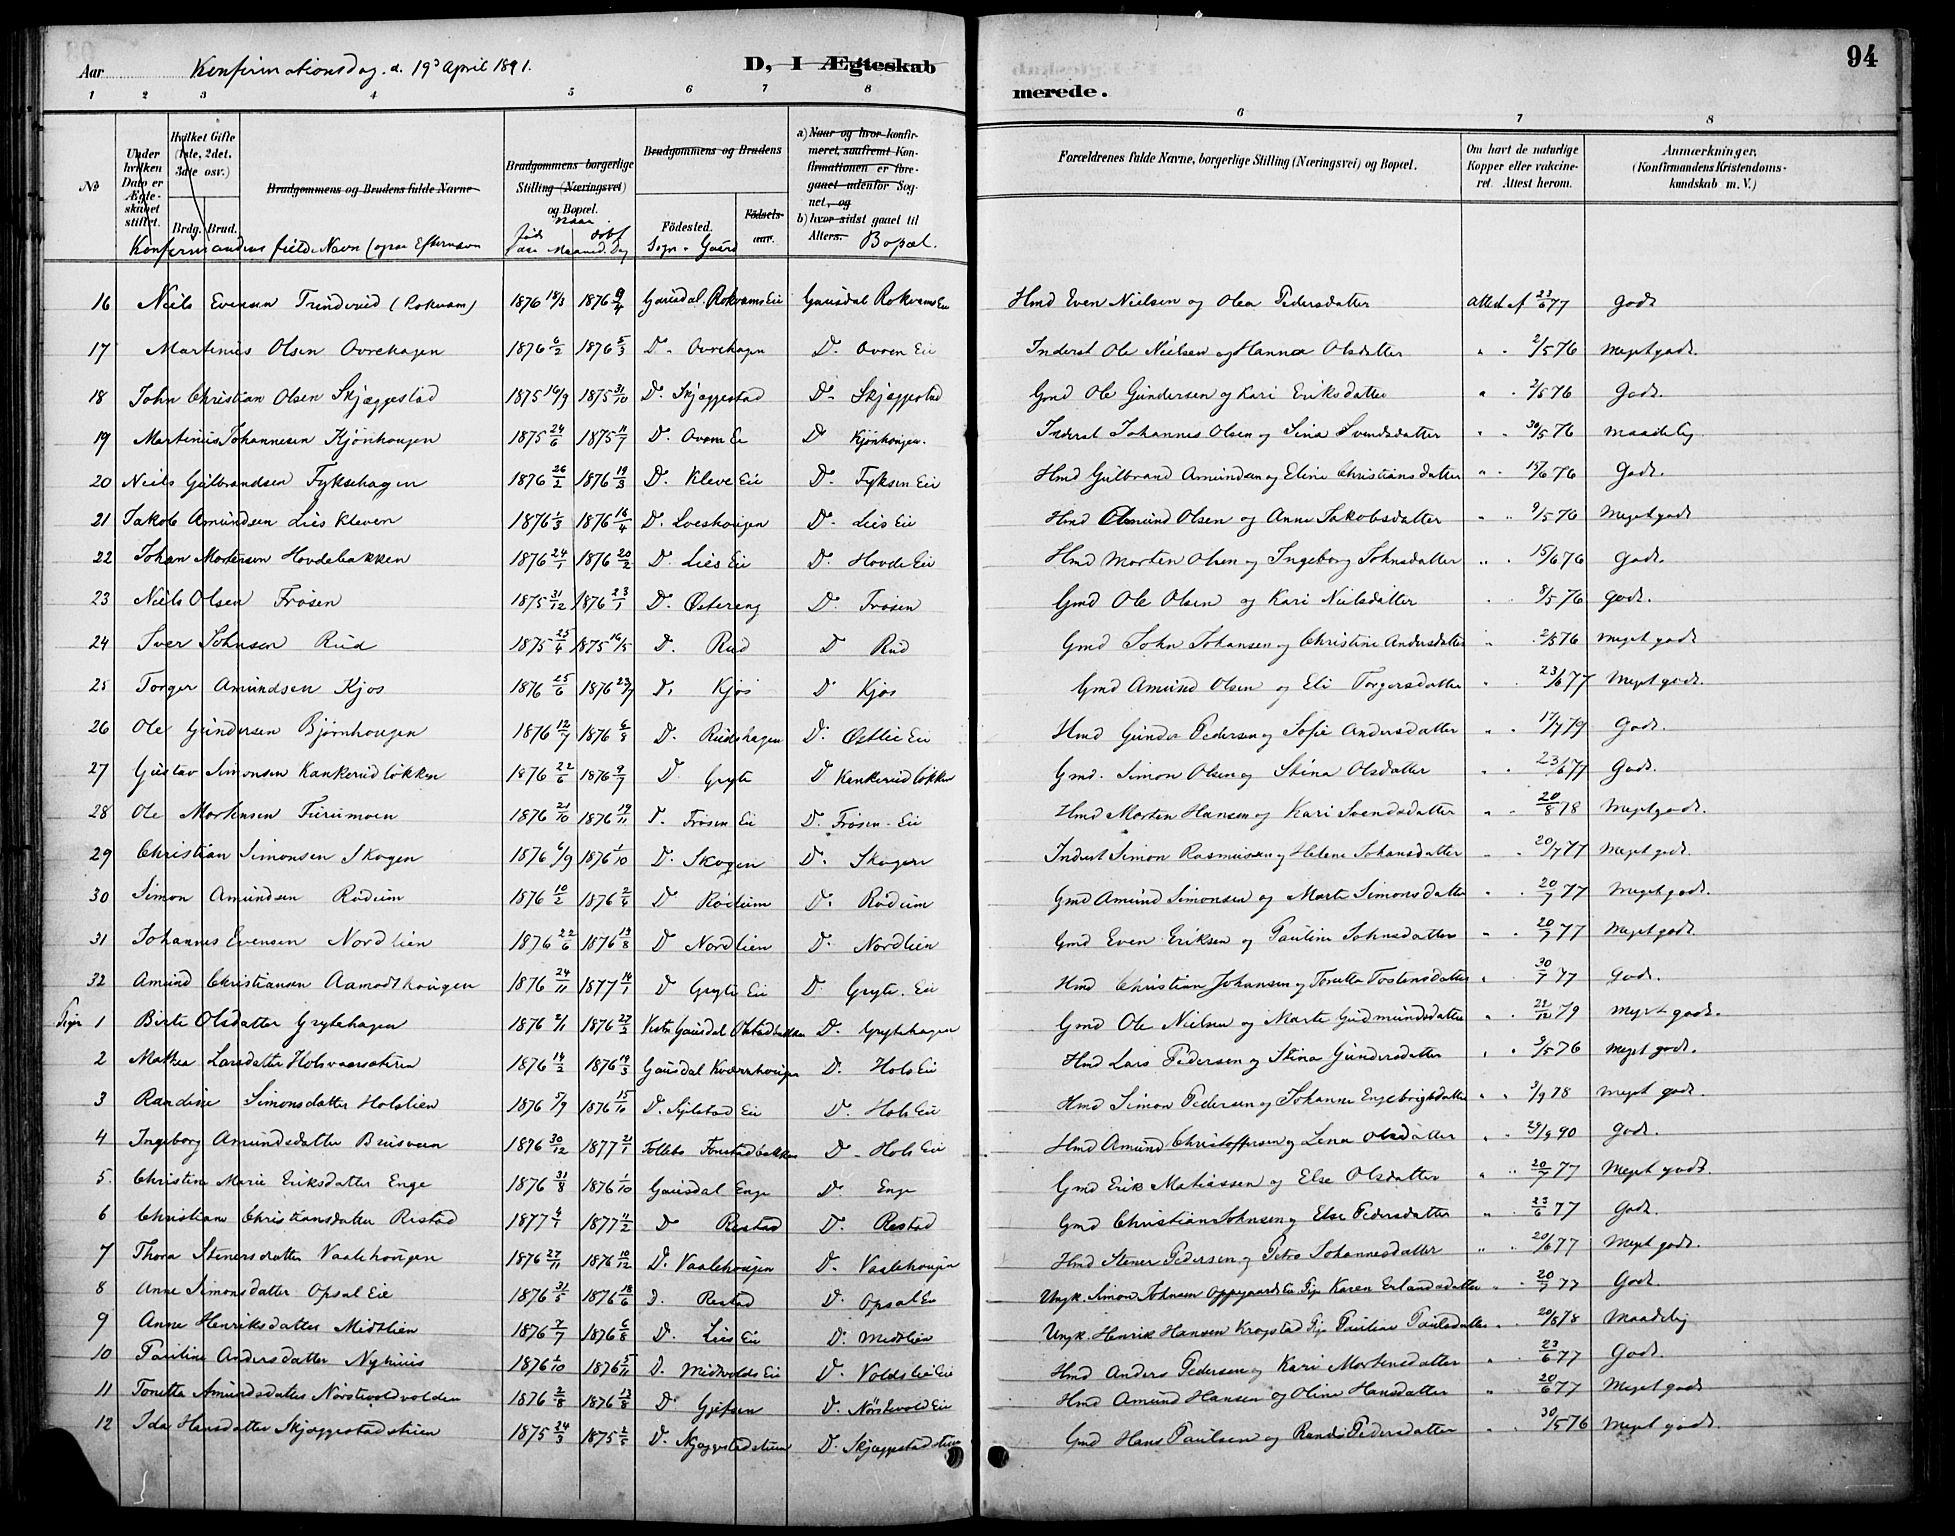 94
Aar Konfirmationsdag. d. 19de April 1891. D, I Ægteskab
merede.
1 2 3 4 5 6 7 8 6 7 8
No
Under hvilken Dato er Ægteskabet stiftet.
Hvilket Gifte (1ste, 2det, 3die osv.)
Brdg. Brud.
Brudgommens og Brudens fulde Navne
Konfirmandens fulde Navn (ogsaa Efternavn
Brudgommens borgerlige Stilling (Næringsvei) og Bopæl.
Naar født døbt
Aar Maaned. Dag
Brudgommens og Brudens
Fødested. Fødsels-aar.
Sogn - Gaard
a) Naar og hvor konfirmeret, saafremt Konfirmationen er foregaaet udenfor Sognet, og
b) hvor sidst gaaet til Alters.
Bopæl.
Forældrenes fulde Navne, borgerlige Stilling (Næringsvei) og Bopæl.
Om havt de naturlige Kopper eller vakcineret. Attest herom.
Anmærkninger, (Konfirmandens Kristendomskundskab m. V.)
16 Niels Evensen Trinderud (Rokvam) 1876 18/3 1876 9/4 Gausdal. Rokvams Eie Gausdal Rokvams Eie Hmd Even Nielsen og Olea Pedersdatter Attest af 23/6 77 Godt
17 Martinius Olsen Ovrehagen 1876 6/2 1876 5/3 D. Ovrehagen D. Ovren Eie Inderst Ole Nielsen og Hanna Olsdatter " " 2/5 76 Meget godt.
18 John Christian Olsen Skjæggestad 1875 16/9 1875 31/10 D. Skjæggestad D. Skjæggestad Gmd Ole Gundersen og Kari Eriksdatter " " 2/5 76 Godt.
19 Martinius Johannesen Kjønhougen 1875 24/6 1875 11/7 D. Ovren Eie D Kjønhougen. Inderst Johannes Olsen og Sina Svendsdatter " " 30/5 76 Maadelig
20 Niels Gulbrandsen Fyksehagen 1876 26/2 1876 19/3 D. Kleve Eie D. Fyksen Eie Hmd Gulbrand Amundsen og Eline Christiansdatter " " 15/6 76 Godt.
21 Jakob Amundsen Lies Kleven 1876 1/3 1876 16/4 D. Loeshougen D. Lies Eie Hmd Amund Olsen og Anne Jakobsdatter " " 9/5 76 Meget godt
22 Johan Mortensen Hovdebakken 1876 24/1 1876 20/2 D. Lies Eie D. Hovde Eie Hmd Morten Olsen og Ingeborg Johnsdatter " " 15/6 76 Godt.
23 Niels Olsen Frøsen 1875 31/12 1876 23/1 D. Østereng D. Frøsen Gmd Ole Olsen og Kari Nielsdatter " " 8/5 76 Godt.
24 Iver Johnsen Rud 1875 25/4 1875 16/5 D. Rud D Rud Gmd John Johansen og Christine Andersdatter " " 2/5 76 Meget godt
25 Torger Amundsen Kjos 1876 25/6 1876 23/7 D. Kjos D Kjos Gmd Amund Olsen og Eli Torgersdatter " " 23/6 77 Meget godt.
26 Ole Gundersen Bjørnhougen 1876 12/7 1876 6/8 D. Rudshagen D. Østlie Eie Hmd Gunder Pedersen og Sofie Andersdatter " " 17/7 79 Godt.
27 Gustav Simonsen Kankerudløkken 1876 22/6 1876 9/7 D. Gryte D Kankerudløkken Gmd. Simon Olsen og Stina Olsdatter " " 23/6 77 Godt.
28 Ole Mortensen Furumoen 1876 21/10 1876 19/11 D. Frøsen Eie D. Frøsen Eie Hmd Morten Hansen og Kari Svendsdatter " " 20/8 78 Meget godt.
29 Christian Simonsen Skogen 1876 6/9 1876 1/10 D. Skogen D. Skogen Inderst Simon Rasmusen og Helene Johansdatter " " 20/7 77 Meget godt.
30 Simon Amundsen Rødum 1876 10/2 1876 2/4 D Rødum D. Rødum Gmd Amund Simonsen og Marte Simonsdatter " " 20/7 77 Meget godt.
31 Johannes Evensen Nordlien 1876 22/6 1876 13/8 D Nordlien D. Nordlien Gmd Even Eriksen og Pauline Johnsdatter " " 20/7 77 Meget godt.
32 Amund Christiansen Aamodthougen 1876 24/11 1877 14/1 D Gryte Eie D. Gryte. Eie Hmd Christian Johansen og Tonette Tostensdatter " 30/7 77 Godt.
Pige 1 Birte Olsdatter Grytehagen 1876 2/1 1876 27/2 Vestre Gausdal Olstadbakken D. Grytehagen Gmd Ole Nielsen og Marte Gudmundsdatter " " 22/12 79 Meget godt.
2 Mathea Larsdatter Holsvaarsæteren 1876 14/2 1876 19/3 Gausdal Kværnhougen D. Hols Eie Hmd Lars Pedersen og Stina Gundersdatter " " 9/5 76 Meget godt.
3 Randine Simonsdatter Holslien 1876 5/9 1876 15/10 D. Sylstad Eie D. Hols Eie Hmd Simon Pedersen og Johanne Engebrigtsdatter " " 3/9 78 Meget godt.
4 Ingeborg Amundsdatter Bruisveen 1876 30/12 1877 21/1 Follebo Fonstadbakken D. Hols Eie Hmd Amund Christoffersen og Lena Olsdatter " " 29/9 90 Godt.
5. Christine Marie Eriksdatter Enge 1876 31/8 1876 1/10 Gausdal Enge D. Enge Gmd Erik Matiassen og Else Olsdatter " " 20/7 77 Meget godt.
6 Christiane Christiansdatter Restad 1877 6/1 1877 11/2 D Restad D. Restad Gmd Christian Johnsen og Else Pedersdatter " " 23/6 77 Godt.
7 Thora Stenersdatter Vaalehougen 1876 27/11 1876 10/12 D. Vaalehougen D. Vaalehougen Hmd Stener Pedersen og Petra Johannesdatter " " 20/6 77 Meget godt.
8 Anne Simonsdatter Opsal Eie 1876 31/5 1876 18/6 D. Restad D. Opsal Eie Ungk. Simon Johnsen Oppgaards Eie Pige Karen Erlandsdatter " " 20/7 77 Godt.
9 Anne Henriksdatter Midtlien 1876 7/7 1876 6/8 D. Lies Eie D. Midtlien Ungk. Henrik Hansen Krogstad Pige Pauline Paulsdatter " " 20/8 78 Maadelig
10 Pauline Andersdatter Nyhuus 1876 1/10 1876 5/11 D. Midtvolds Eie D. Voldslie Eie Hmd Anders Pedersen og Kari Mortensdatter " " 23/6 77 Godt.
11 Tonette Amundsdatter Nørstevoldvolden 1876 2/8 1876 13/8 D. Gjefsen D. Nørstevold Eie Hmd Amund Hansen og Oline Hansdatter " 20/6 77 Meget godt
12 Ida Hansdatter Skjæggestadstuen 1875 24/3 1875 2/5 D. Skjæggestadstuen D. Skjæggestadstuen Gmd Hans Paulsen og Randi Pedersdatter " " 30/5 76 Meget godt.